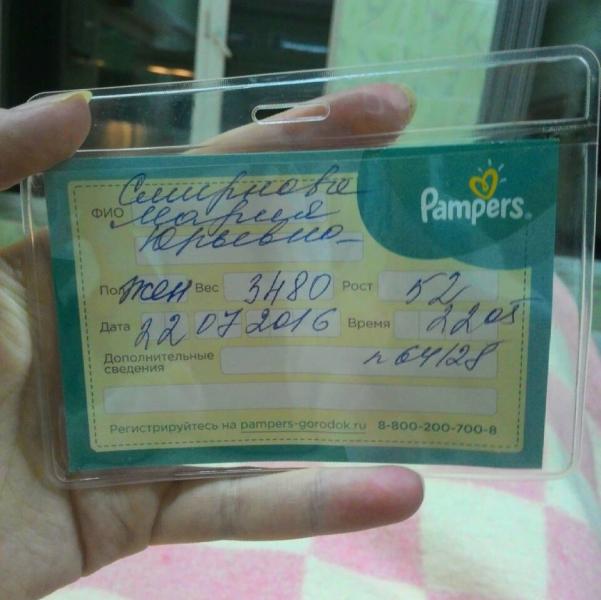 Pampers
ФИО Смирнова
Мария
Юрьевна
Пол жен Вес 3480 Рост 52
Дата 22 07 2016 Время 22 05
Дополнительные сведения 64/28
Регистрируйтесь на pampers-gorodok.ru 8-800-200-700-8